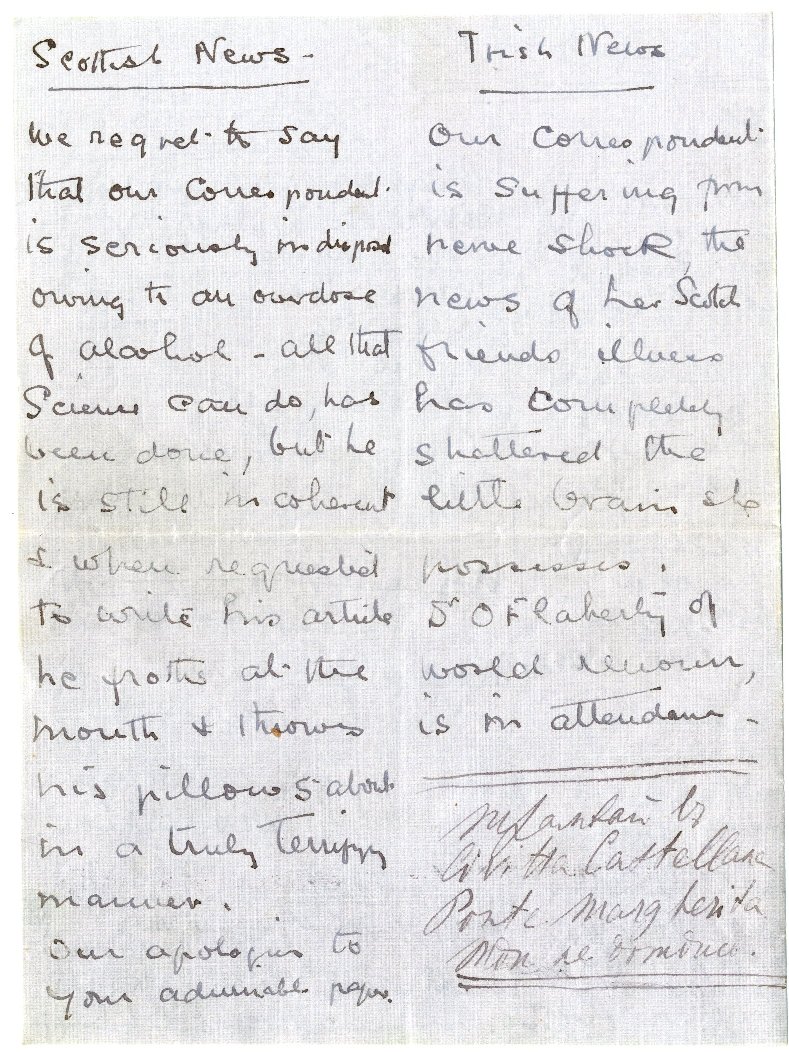 Scottish News -
We regret to say
that our Correspondent
is seriously indisposed
owing to an overdose
of alcohol - all that
Science can do, has
been done, but he
is still incoherent
& when requested
to write his article
he froths at the
mouth & throws
his pillows about
in a truly terrifying
manner.
Our apologies to
your admirable paper.
Irish News
Our Correspondent
is suffering from
nerve shock, the
news of her Scotch
friends illness
has completely
shattered the
little brain she
possesses.
Dr O Flaherty of
world renown,
is in attendance -
Civitta Castellana
Ponte Margherita
Non